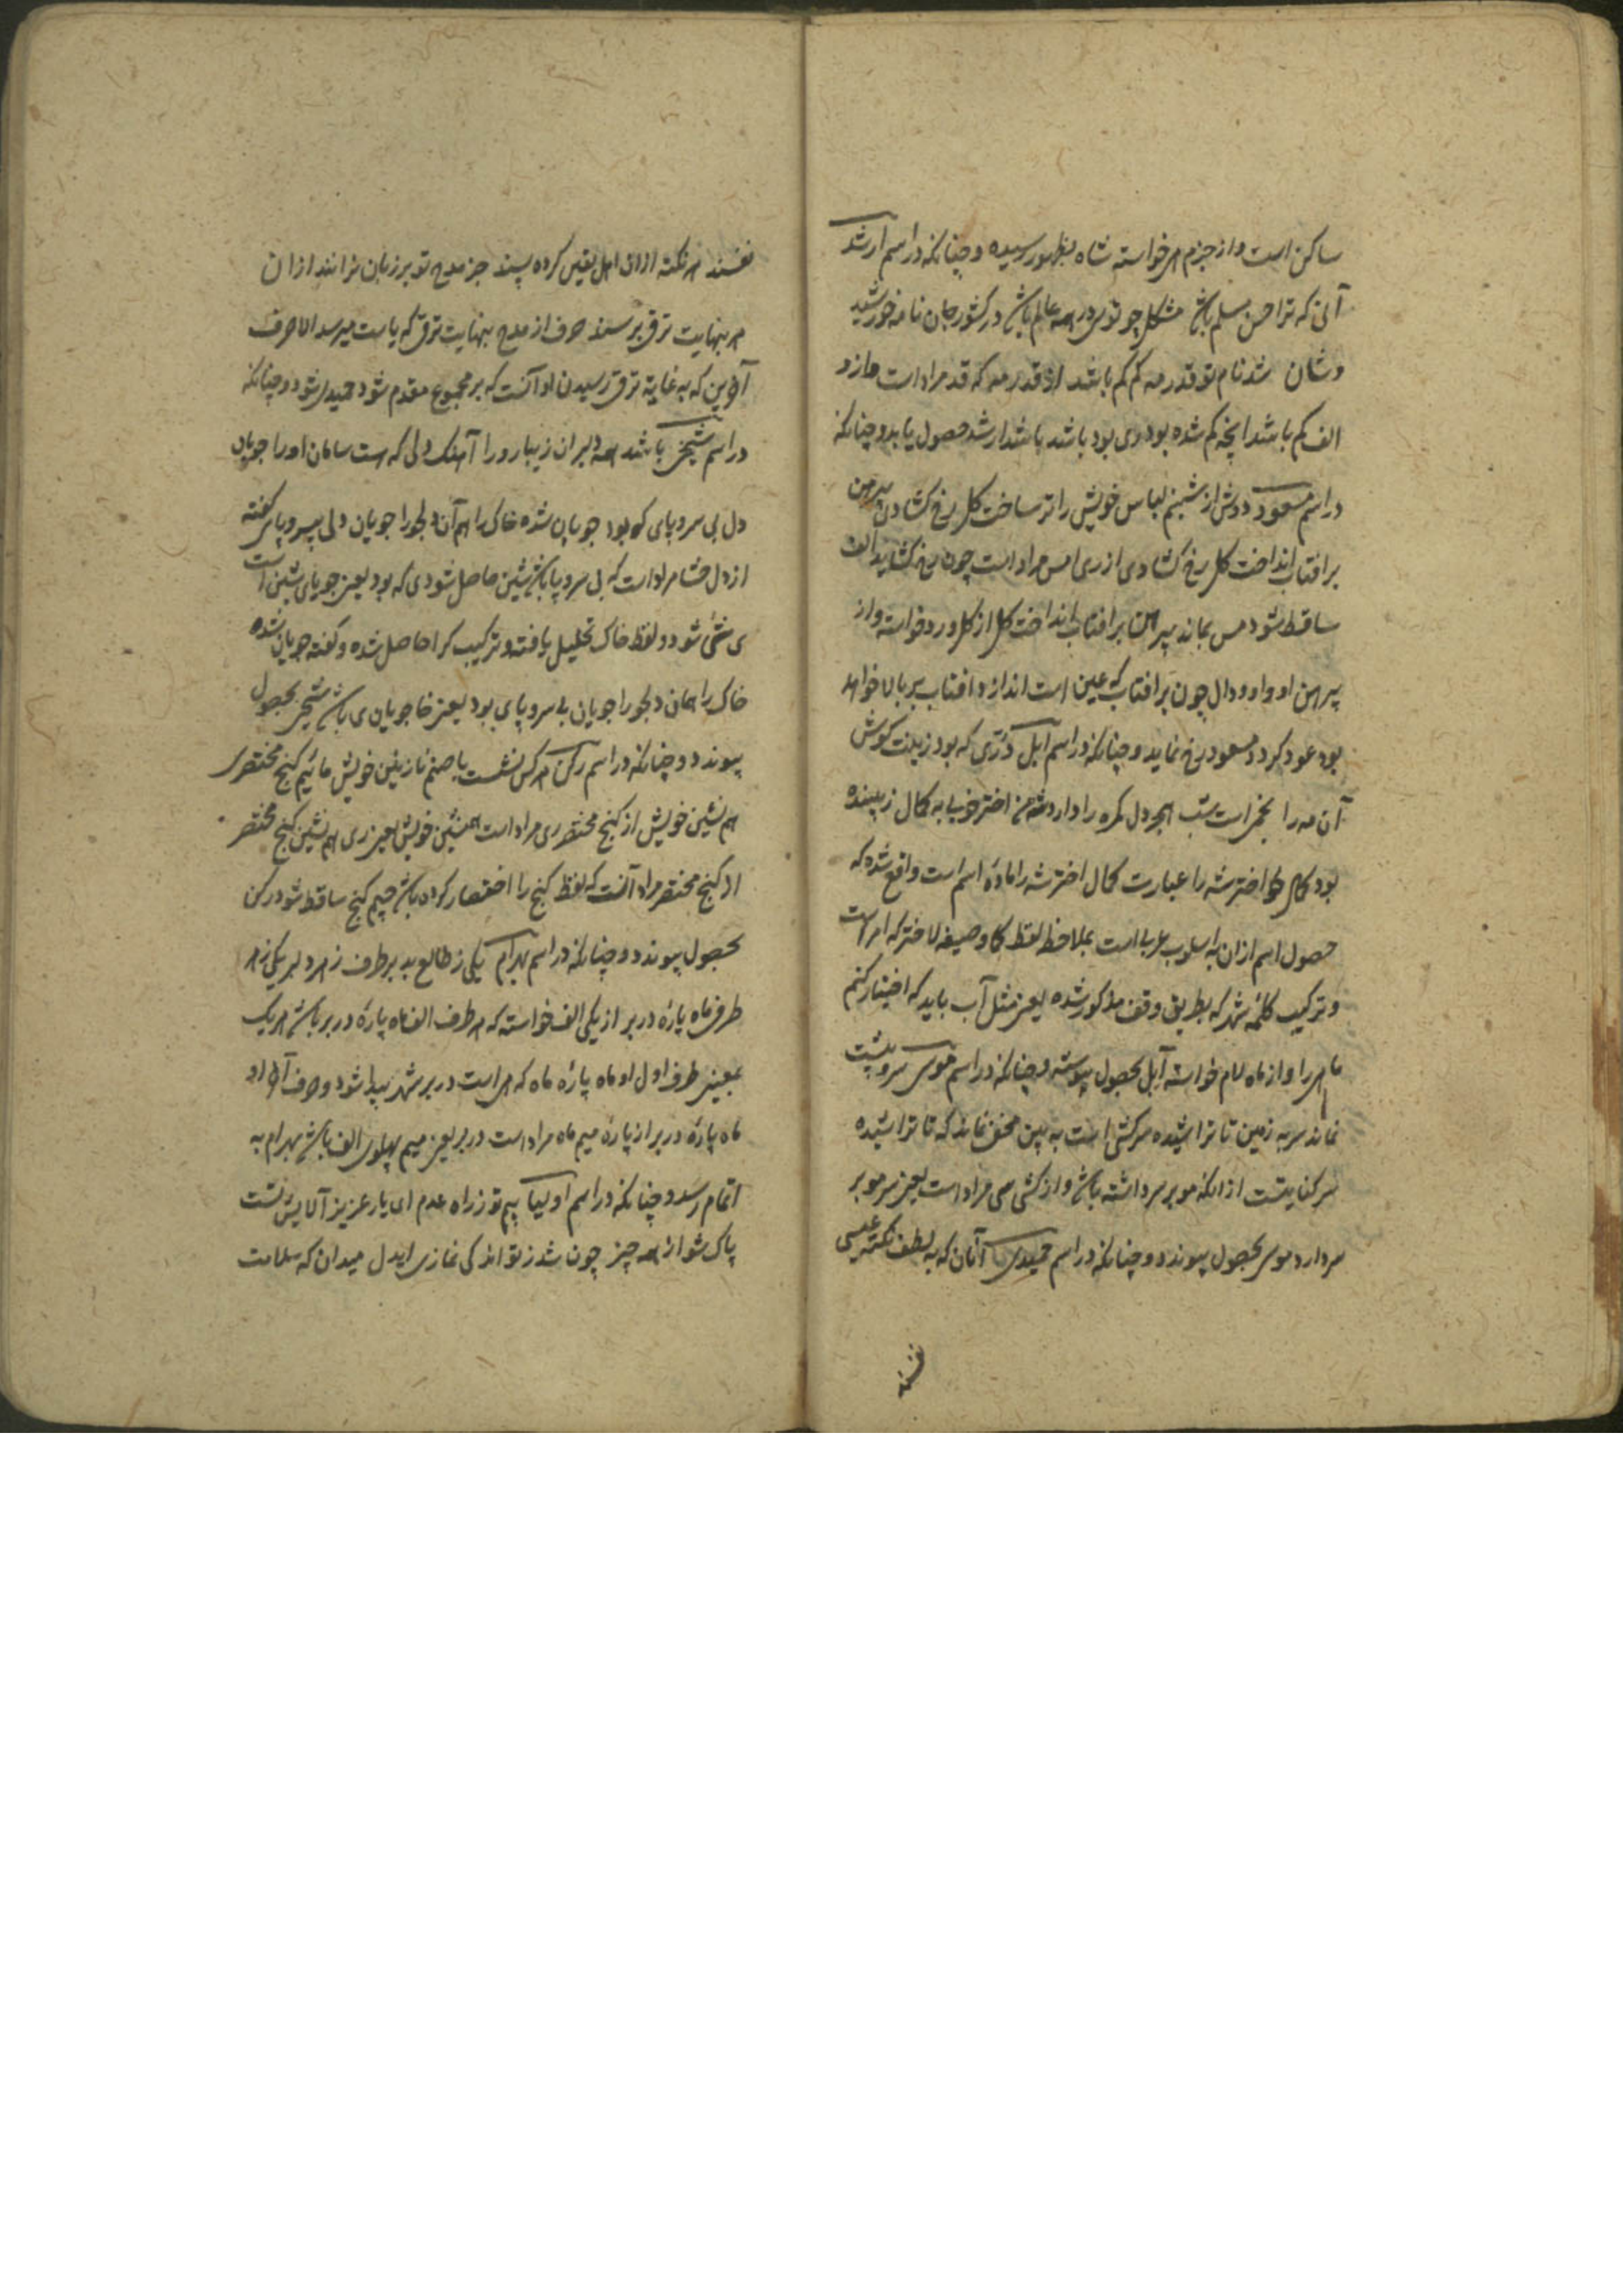 ساکن است و از جزم هر خواسته شاه بظهور رسیده و چنانکه در اسم ارشد
آنی که ترا حسن مسلم باشد مشکل چو توی در همه عالم باشد در کشور جان نامه خورشید
وشان شد نام تو قدر مه کم کم باشد از قدر مه که قد مراد است و از و
الف کم باشد آنچه کم شده بود وی بود باشد باشد ارشد حصول یابد و چنانکه
در اسم مسعود دوش از شبنم لباس خویش را تر ساخت گل رخ کشاد و پیرهن
بر افتاب انداخت گل رخ کشادی از ری امس مراد است چون رخ کشاید الف
ساقط شود مس بماند پیراهن بر افتاب انداخت گل از گل ورد خواسته و از
پیرهن او واو و دال چون بر افتاب که عین است اندازد افتاب بر بالا خواهد
بود عود کردد مسعود رخ نماید و چنانکه در اسم ابل دری که بود زینت کوش
آن مه را بخمر است شب هجر دل کمره را دارد شه من اختر خوبی به کمال زیبنده
بود کمال اختر شه را عبارت کمال اختر شه را ماده اسم است واقع شده که
حصول اسم ازان به اسلوب عربی است بملاحظه لفظ کما و صیغه لاختر که امر است
و ترکیب کلمه شهر که بطریق وقف مذکور شده یعنی مثل آب باید که اختیار کنم
ماهی را و از ماه لام خواسته ابل بحصول پیوسته و چنانکه در اسم موسی سرو پشت
نماند سر به زمین تا تراشیده سرکشی است به بین مخفی نماند که تا تراشیده
سر کنایتست از انکه مو بر سر داشته باشد و از کشی سی مراد است یعنی سر مو بر
سر دارد موسی بحصول پیوندد و چنانکه در اسم حمیدی آنان که به لطف نکته عیسی
نفسند
نفسند هر نکته ازان اهل یقین کرده پسند جز مدح تو بر زبان نرانند ازان
هر بنهایت ترقی برسند حرف از مدح بنهایت ترقی که یاست میرسد الا حرف
آخرین که به غایة ترقی رسیدن او آنست که بر مجموع مقدم شود حمیدی شود و چنانکه
در اسم شیخی باشد همه دلبران زیبا رو را آهنک دلی که هست سامان او را جویان
دل بی سر و پای که بود جویان شده خاک را هم آن دلجو را جویان دلی بی سر و پای کفته
از دل حشا مراد است که بی سر و پا باشد شین حاصل شود ی که بود یعنی جویای شین است
ی شی شود و لفظ خاک تحلیل یافته و ترکیب کرا حاصل شده و کفته جویان شده
خاک را همان دلجو را جویان بی سر و پای بود یعنی خا جویان ی باشد شیخی بحصول
پیوندد و چنانکه در اسم رکن هر کس نشست با صنم نازنین خویش مائیم کنج مختصری
هم نشین خویش از کنج مختصر ری مراد است همنشین خویش یعنی ری هم نشین کنج مختصر
از کنج مختصر مراد آنست که لفظ کنج را اختصار کرده باشد جیم کنج ساقط شود رکن
بحصول پیوندد و چنانکه در اسم بهرام یکی ز طالع بد بر طرف ز هر دلبر یکی ز هر
طرف ماه پاره در بر از یکی الف خواسته که هر طرف الف ماه پاره در بر باشد هر یک
بمعینی طرف اول او ماه پاره ماه که هر است در بر شهر پیدا شود و حرف آخر او
ماه پاره در بر از پاره میم ماه مراد است در بر یعنی میم پهلوی الف باشد بهرام به
اتمام رسد و چنانکه در اسم اولیا بیم تو ز راه عدم ای یار عزیز آلایش تست
پاک شو از همه چیز چون شد ز تو اندکی نمازی ایدل میدان که سلامت